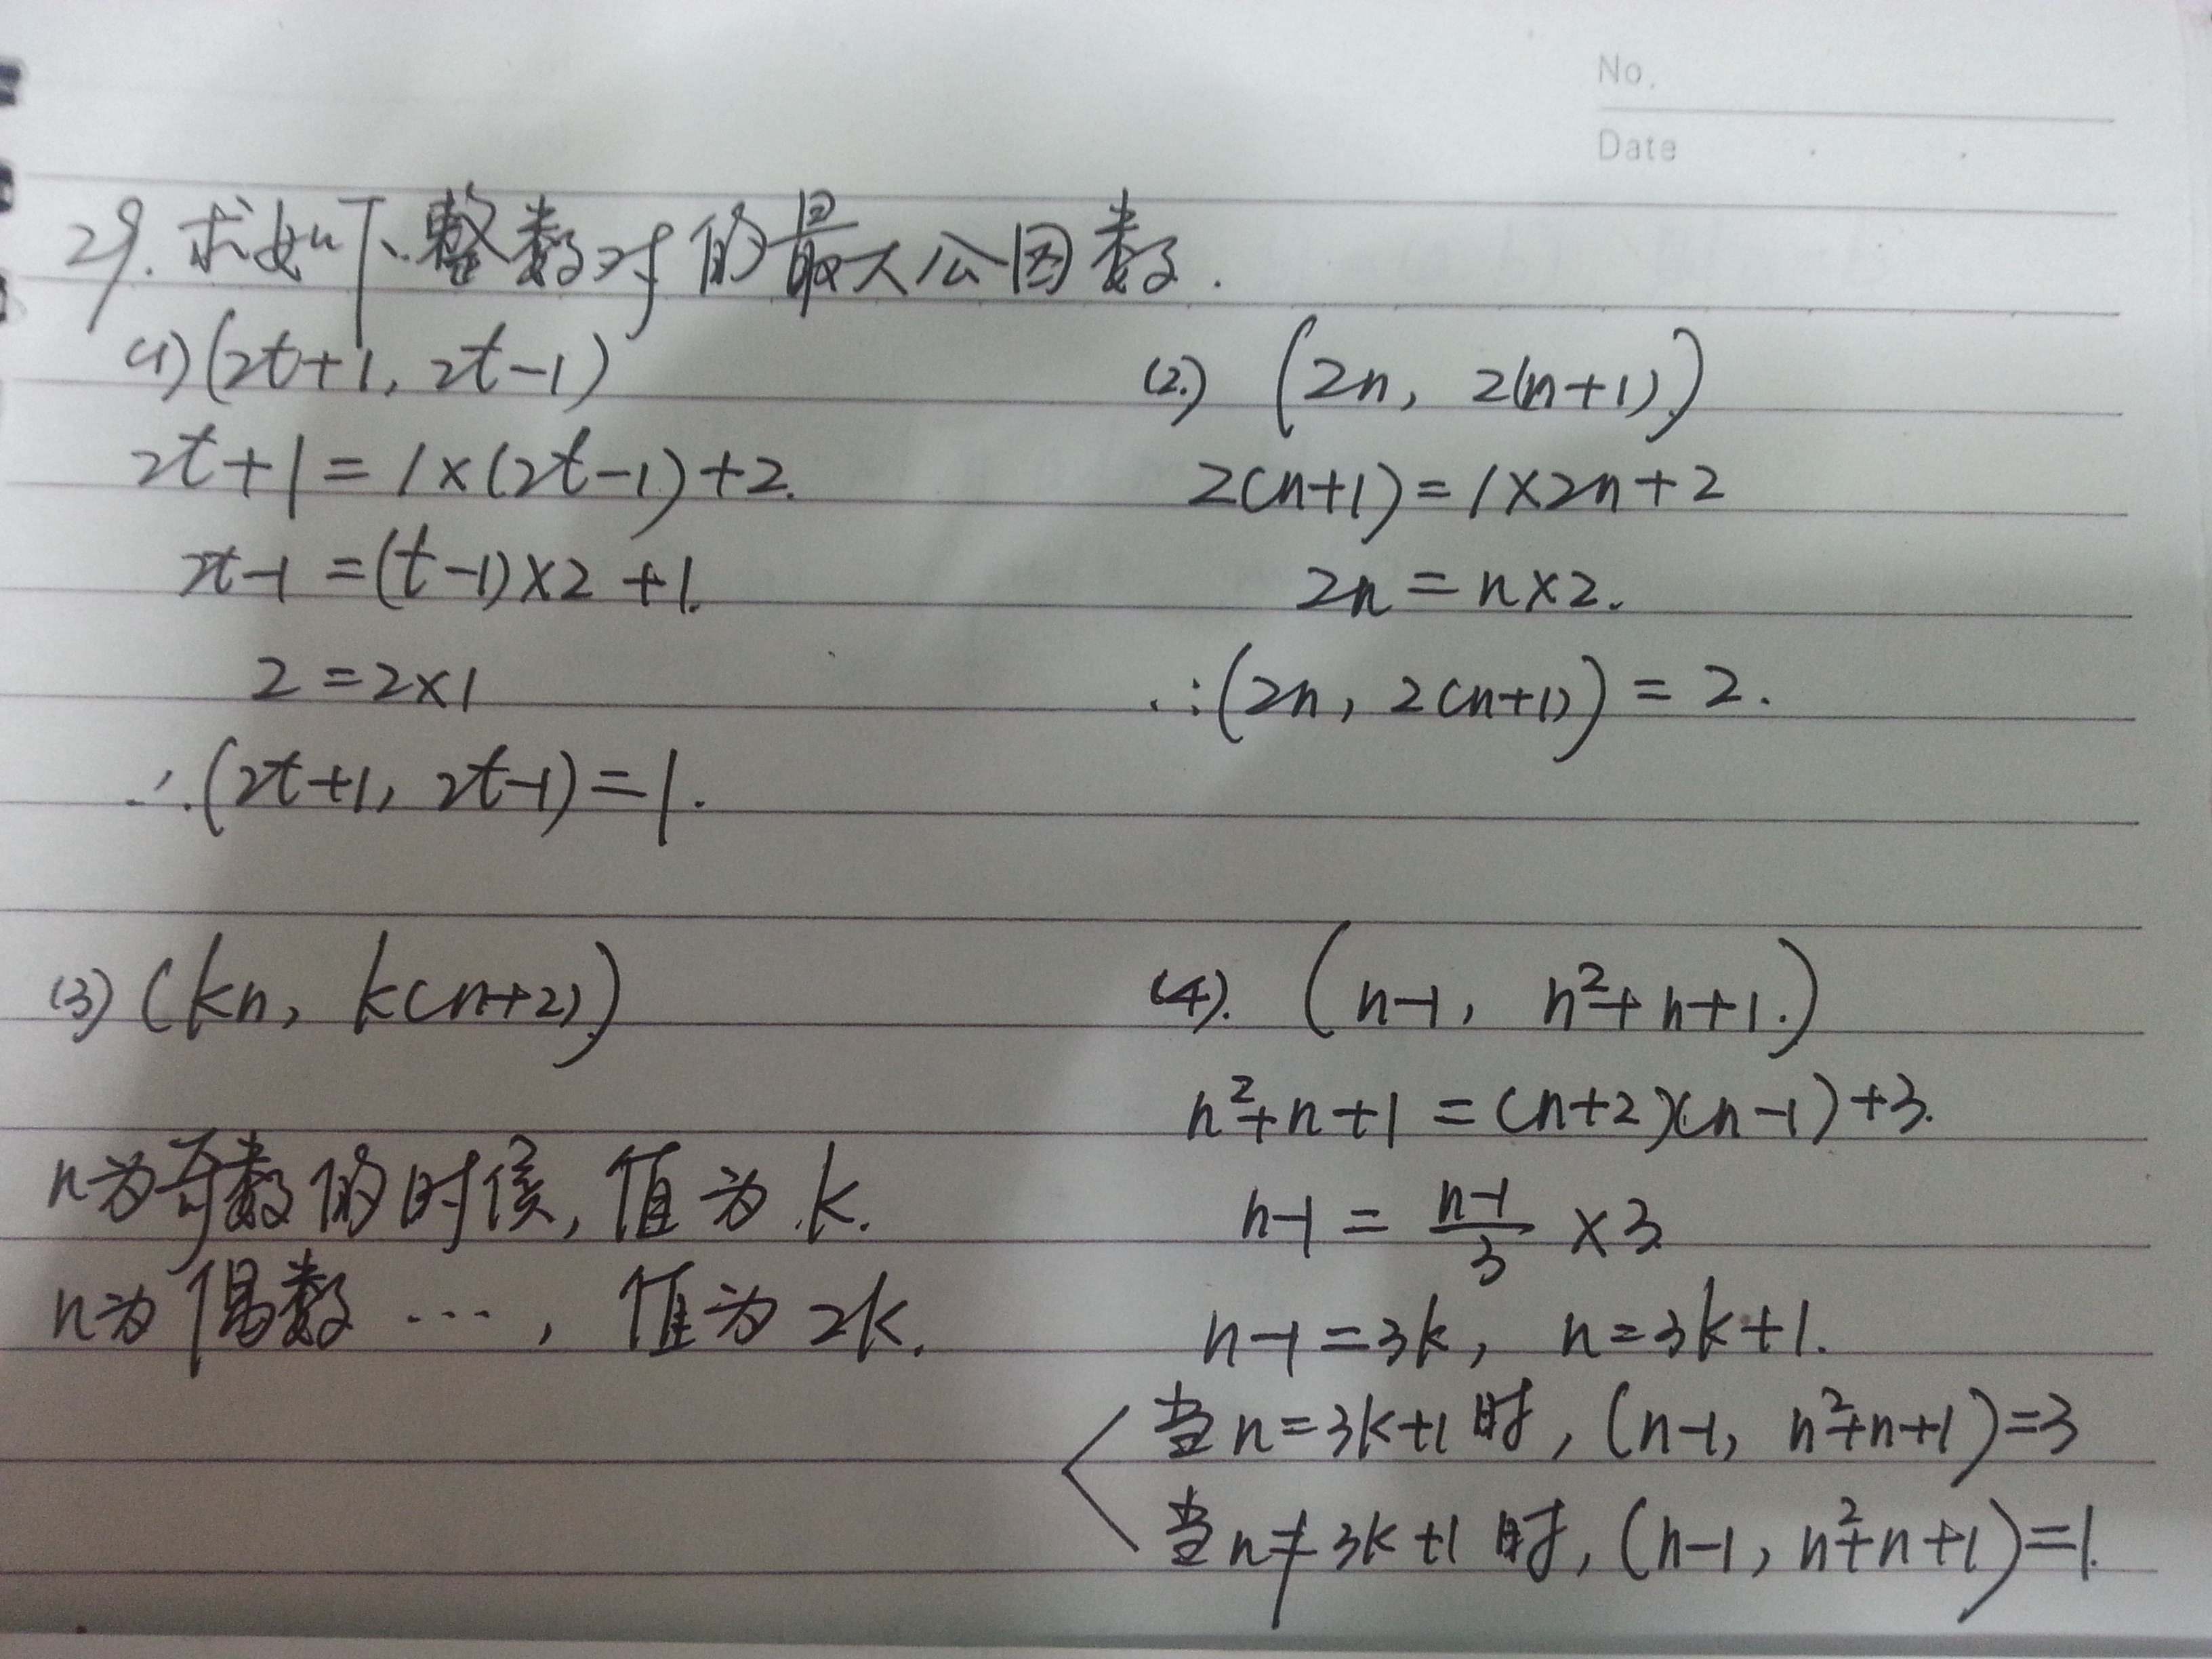 No.
Date
29. 求如下整数对的最大公因数.
(1) (2t+1, 2t-1)
2t+1=1×(2t-1)+2.
2t-1=(t-1)×2+1.
2=2×1
∴(2t+1, 2t-1)=1.
(2.) (2n, 2(n+1).)
2(n+1)=1×2n+2
2n=n×2.
∴(2n, 2(n+1))=2.
(3) (kn, k(n+2).)
n为奇数的时候, 值为k.
n为偶数…, 值为2k.
(4). (n-1, n²+n+1.)
n²+n+1=(n+2)(n-1)+3.
n-1=\frac{n-1}{3}×3
n-1=3k, n=3k+1.
当n=3k+1时, (n-1, n²+n+1)=3
当n≠3k+1时, (n-1, n²+n+1)=1.